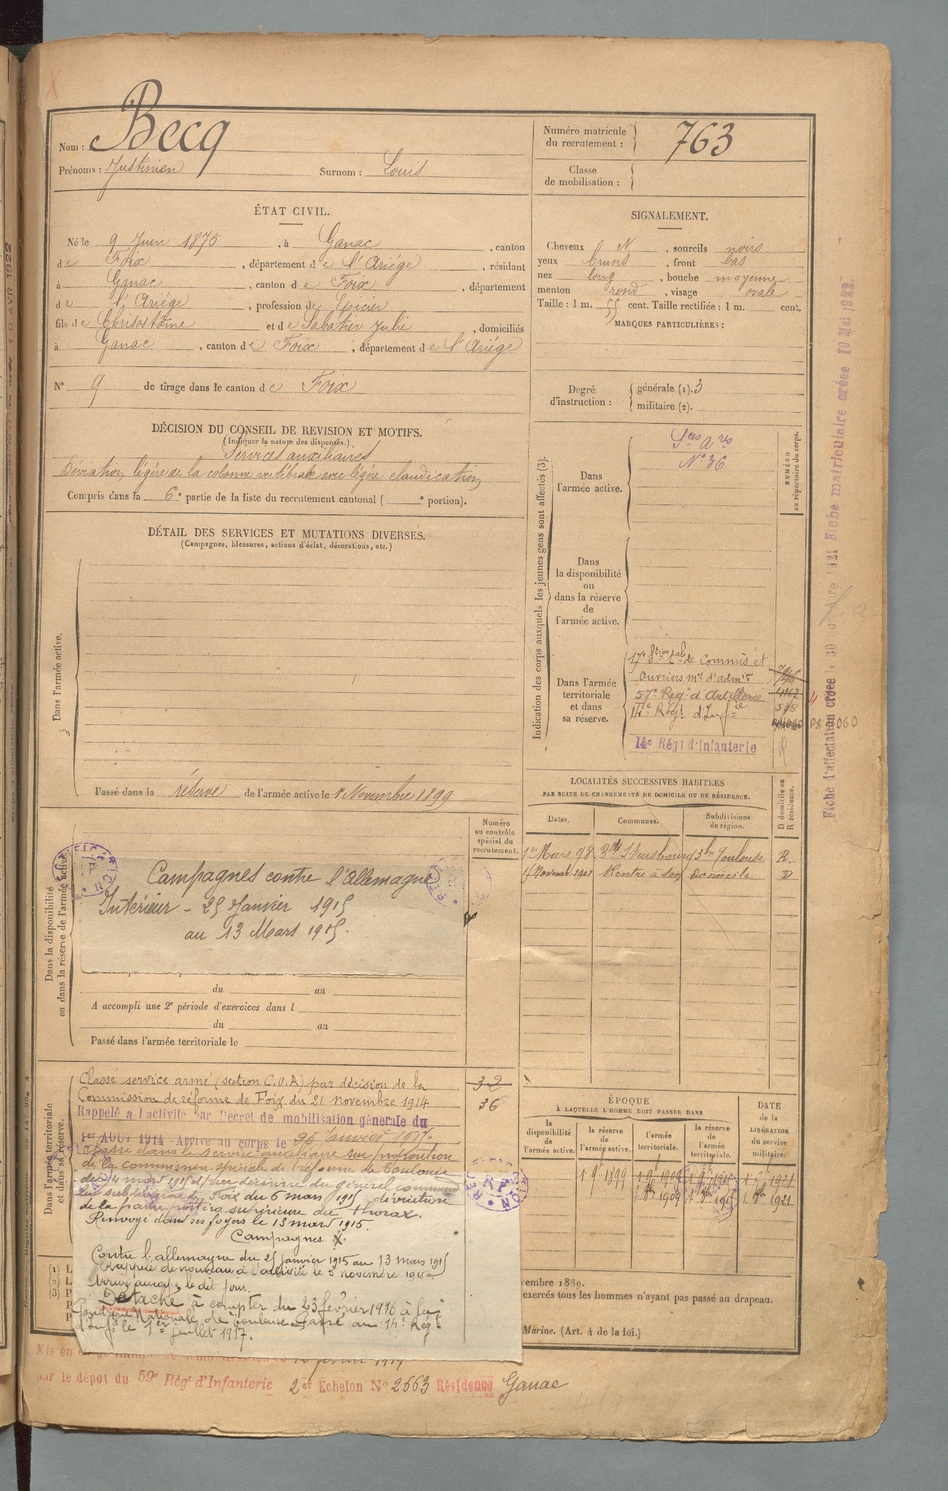 Nom : Becq
Prénoms : Justinien Surnom : Louis
Numéro matricule
du recrutement : 763
Classe
de mobilisation :
ÉTAT CIVIL.
Né le 9 Juin 1875, à Ganac, canton
de Foix, département de l'Ariége, résidant
à Ganac, canton de Foix, département
de l'Ariége, profession de Epicier
fils de Chrisostôme et de Sabatier Julie, domiciliés
à Ganac, canton de Foix, département de l'Ariége
N° 9 de tirage dans le canton de Foix
SIGNALEMENT.
Cheveux N, sourcils noirs
yeux bruns, front bas
nez long, bouche moyenne
menton rond, visage ovale
Taille : 1 m. 55 cent. Taille rectifiée : 1 m. cent.
MARQUES PARTICULIÈRES :
Degré
d'instruction :
générale (1). 3
militaire (2).
DÉCISION DU CONSEIL DE REVISION ET MOTIFS.
(Indiquer la nature des dispenses.)
Services auxiliaires
Déviation légère de la colonne vertébrale avec légère claudication
Compris dans la 6e partie de la liste du recrutement cantonal ( e portion).
DÉTAIL DES SERVICES ET MUTATIONS DIVERSES.
(Campagnes, blessures, actions d'éclat, décorations, etc.)
Dans l'armée active.
Passé dans la réserve de l'armée active le 1 Novembre 1899
Indication des corps auxquels les jeunes gens sont affectés (3).
NUMÉRO
au répertoire du corps.
Dans
l'armée active.
N° 36
Dans
la disponibilité
ou
dans la réserve
de
l'armée active.
Dans l'armée
territoriale
et dans
sa réserve.
17e Son tale de Commis et
Ouvriers mres d'admon
57e Régt d'Artillerie
14e Régt d'Infie
14e Régt d'Infanterie
R
LOCALITÉS SUCCESSIVES HABITÉES
PAR SUITE DE CHANGEMENTS DE DOMICILE OU DE RÉSIDENCE.
Dates. Communes. Subdivisions
de région.
D domicile ou
R résidence.
1er Mars 98 Strasbourg Toulouse R.
Novemb 1901 Rentre à son Domicile D
Numéro
au contrôle
spécial du
recrutement.
Dans la disponibilité
ou dans la réserve de l'armée active.
Campagnes contre l'Allemagne
Intérieur - 25 Janvier 1915
au 13 Mars 1915.
du au
A accompli une 2e période d'exercices dans l
du au
Passé dans l'armée territoriale le
Dans l'armée territoriale
et dans sa réserve.
Classé service armé (section C.O.A) par décision de la
Commission de réforme de Foix du 21 novembre 1914
32
36
Rappelé à l'activité par Décret de mobilisation générale du
1er AOUT 1914 - Arrivé au corps le 25 Janvier 1915.
Passé dans le service auxiliaire sur proposition
de la commission spéciale de réforme de Toulouse
du 4 mars 1915 et par décision du général command
la subdivision de Foix du 6 mars 1915, déviation
de la partie postéro supérieure du thorax.
Renvoyé dans ses foyers le 13 mars 1915.
Campagnes
Contre l'allemagne du 25 janvier 1915 au 13 mars 1915
Rappelé de nouveau à l'activité le 5 novembre 1915
Arrivé au corps le dit jour.
Détaché à compter du 23 février 1916 à la
Poudrerie Nationale de Toulouse. Passé au 14e Régt
d'Infie le 1er juillet 1917.
ÉPOQUE
À LAQUELLE L'HOMME DOIT PASSER DANS
la
disponibilité
de
l'armée active.
la réserve
de
l'armée active.
l'armée
territoriale.
la réserve
de
l'armée
territoriale.
DATE
de la
LIBÉRATION
du service
militaire.
1 9 1899
embre 1889.
exercés tous les hommes n'ayant pas passé au drapeau.
Marine. (Art. 4 de la loi.)
par le dépôt du 59e Régt d'Infanterie 2e Echelon N° 2663 Résidence Ganac
Fiche matriculaire créée 10 Mai 1922.
Fiche d'affectation créée